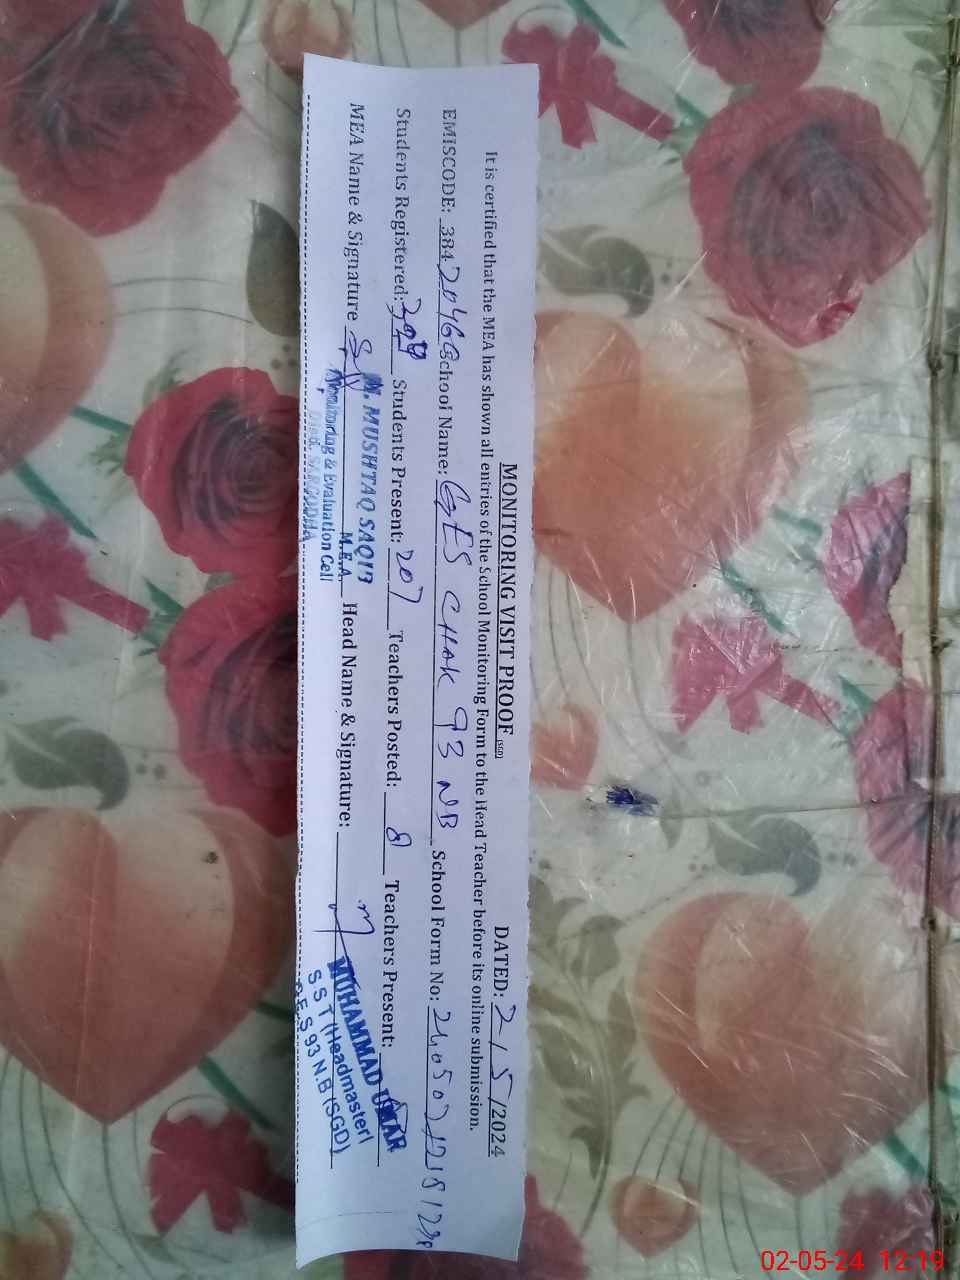 MONITORING VISIT PROOF (SGD) DATED: 2/5/2024
It is certified that the MEA has shown all entries of the School Monitoring Form to the Head Teacher before its online submission.
EMISCODE: 384 20460 School Name: GES CHAK 93 NB School Form No:
Students Registered: Students Present: 207 Teachers Posted: 8 Teachers Present:
MEA Name & Signature Head Name & Signature:
M. MUSHTAQ SAQIB
M.E.A.
Monitoring & Evaluation Cell
Distt. SARGODHA
MUHAMMAD UMAR
S S T (Headmaster)
G.E.S 93 N.B (SGD)
02-05-24 12:19